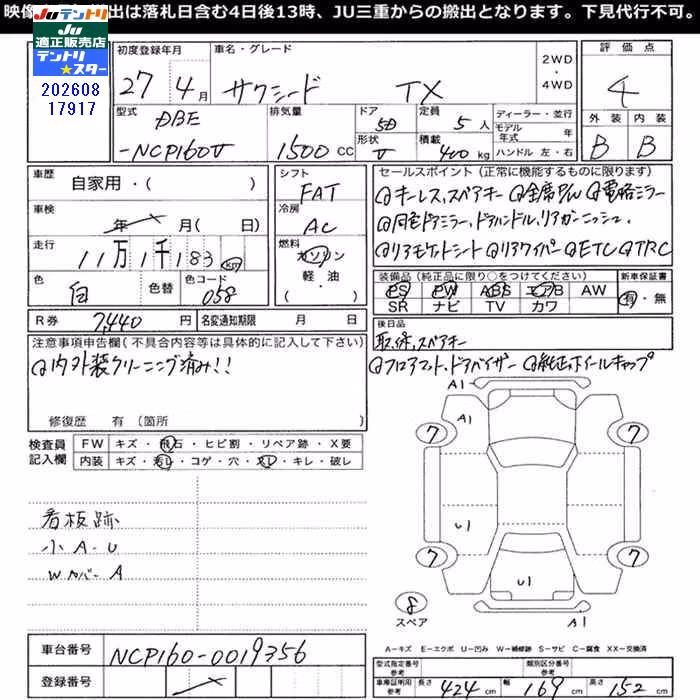 映像 出は落札日含む4日後13時、JU三重からの搬出となります。下見代行不可。
Juテントリ
JU
適正販売店
テントリ
★スター
202608
17917
初度登録年月
27年4月
車名・グレード
サクシード TX
2WD
・
4WD
評価点
4
外装 内装
B B
型式
DBE
-NCP160V
排気量
1500 CC
ドア
5D
形状
V
定員
5人
積載
400 kg
ディーラー・並行
モデル
年式 年
ハンドル 左・右
車歴
自家用・( )
車検
年 月( 日)
走行
11万1千183 km
色
白
色替
色コード
058
シフト
FAT
冷房
AC
燃料
ガソリン
軽・油
( )
セールスポイント(正常に機能するものに限ります)
キーレス,スペアキー 全席P/W 電格ミラー
同色ドアミラー,ドアハンドル,リアガーニッシュ,
リアモケットシート リアワイパー ETC TRC
装備品(純正品に限り○をつけてください)
PS PW ABS エアB AW
SR ナビ TV カワ
新車保証書
有・無
後日品
取,保,スペアキー
フロアマット,ドアバイザー 純正ホイールキャップ
R券 7,440円
名変通知期限 月 日
注意事項申告欄(不具合内容等は具体的に記入して下さい)
内外装クリーニング済み!!
修復歴 有(箇所 )
検査員
記入欄
FW キズ・飛石・ヒビ割・リペア跡・X要
内装 キズ・汚レ・コゲ・穴・スレ・キレ・破レ
看板跡
小A.U
Wカバー A
A1
A1
7
7
U1
7
7
U1
8
スペア
A1
A=キズ E=エクボ U=凹み W=補修跡 S=サビ C=腐食 XX=交換済
車台番号 NCP160-0019356
登録番号
型式指定番号
参考
類別区分番号
参考
車庫証明用
参考
長さ 424 cm 幅 169 cm 高さ 152 cm